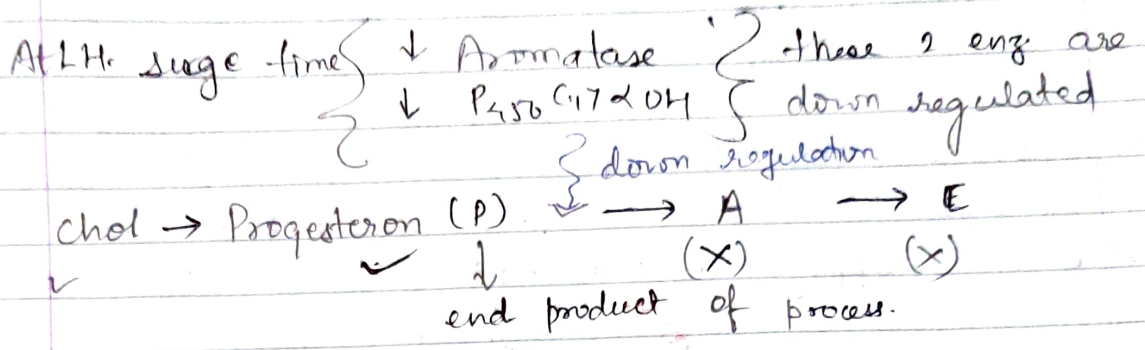 At LH. surge time { ↓ Aromatase } these 2 enz. are
↓ P450 C17αOH } down regulated
{ down regulation
Chol → Progesteron (P) → A → E
✓ ✓ ↓ (×) (×)
end product of process.